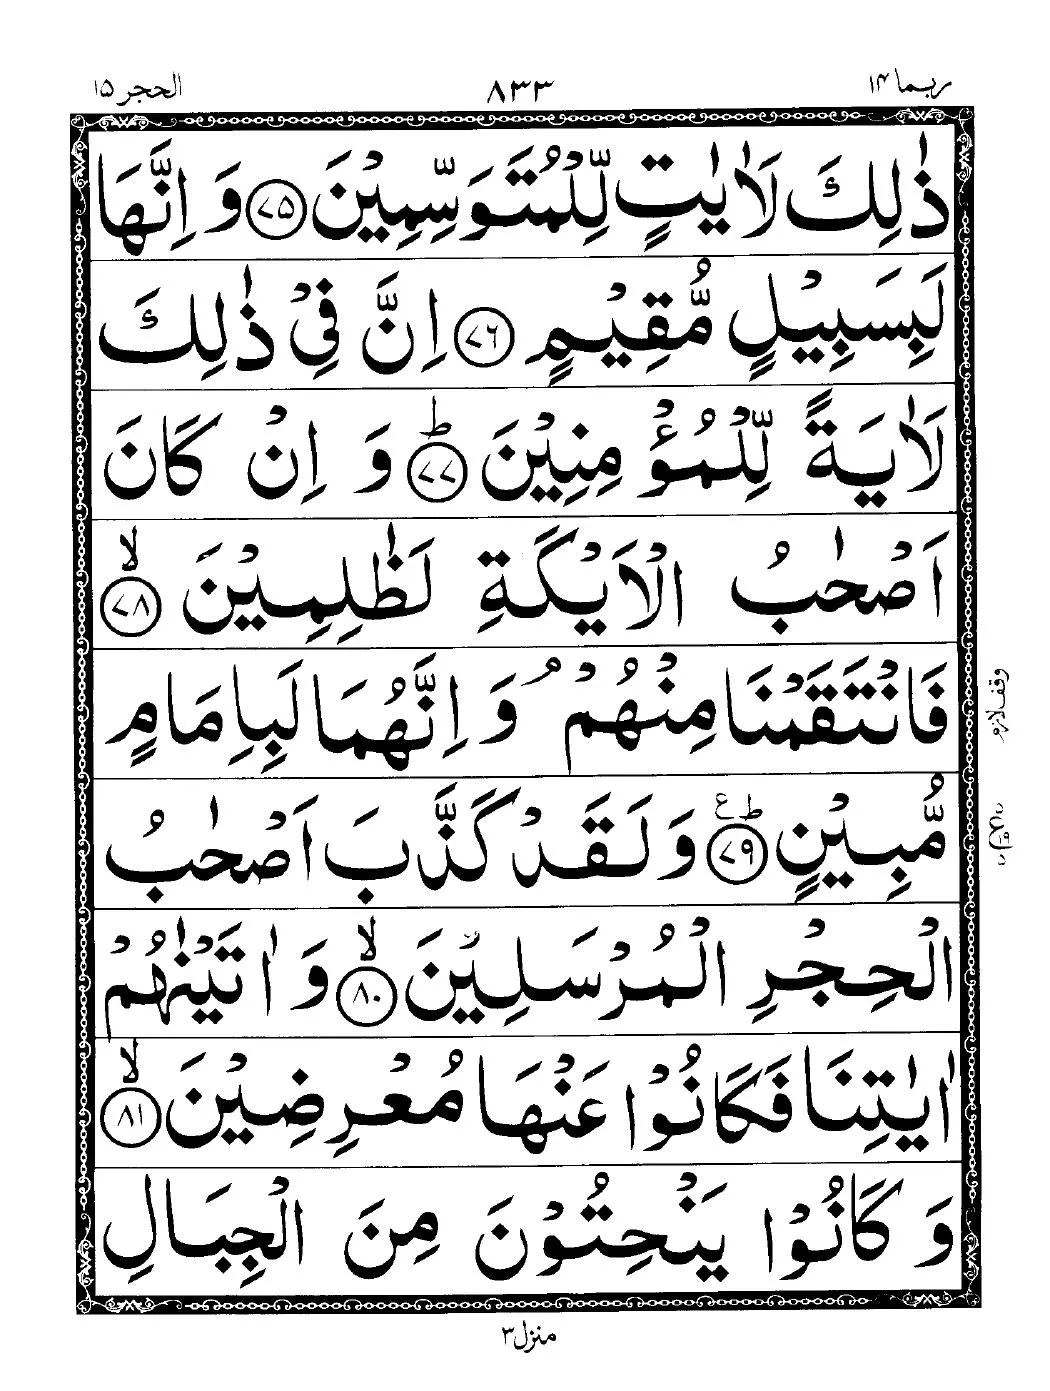 ربما ١۴
٨٣٣
الحجر ١۵
ذٰلِكَ لَاٰيٰتٍ لِّلْمُتَوَسِّمِيْنَ ﴿٧۵﴾ وَ اِنَّهَا
لَبِسَبِيْلٍ مُّقِيْمٍ ﴿٧٦﴾ اِنَّ فِيْ ذٰلِكَ
لَاٰيَةً لِّلْمُؤْمِنِيْنَ ؕ﴿٧٧﴾ وَ اِنْ كَانَ
اَصْحٰبُ الْاَيْكَةِ لَظٰلِمِيْنَ ۙ﴿٧٨﴾
فَانْتَقَمْنَا مِنْهُمْ ۘ وَ اِنَّهُمَا لَبِاِمَامٍ
مُّبِيْنٍ ؕع﴿٧٩﴾ وَلَقَدْ كَذَّبَ اَصْحٰبُ
الْحِجْرِ الْمُرْسَلِيْنَ ۙ﴿٨٠﴾ وَ اٰتَيْنٰهُمْ
اٰيٰتِنَا فَكَانُوْا عَنْهَا مُعْرِضِيْنَ ۙ﴿٨١﴾
وَ كَانُوْا يَنْحِتُوْنَ مِنَ الْجِبَالِ
وقف لازم
منزل ٣